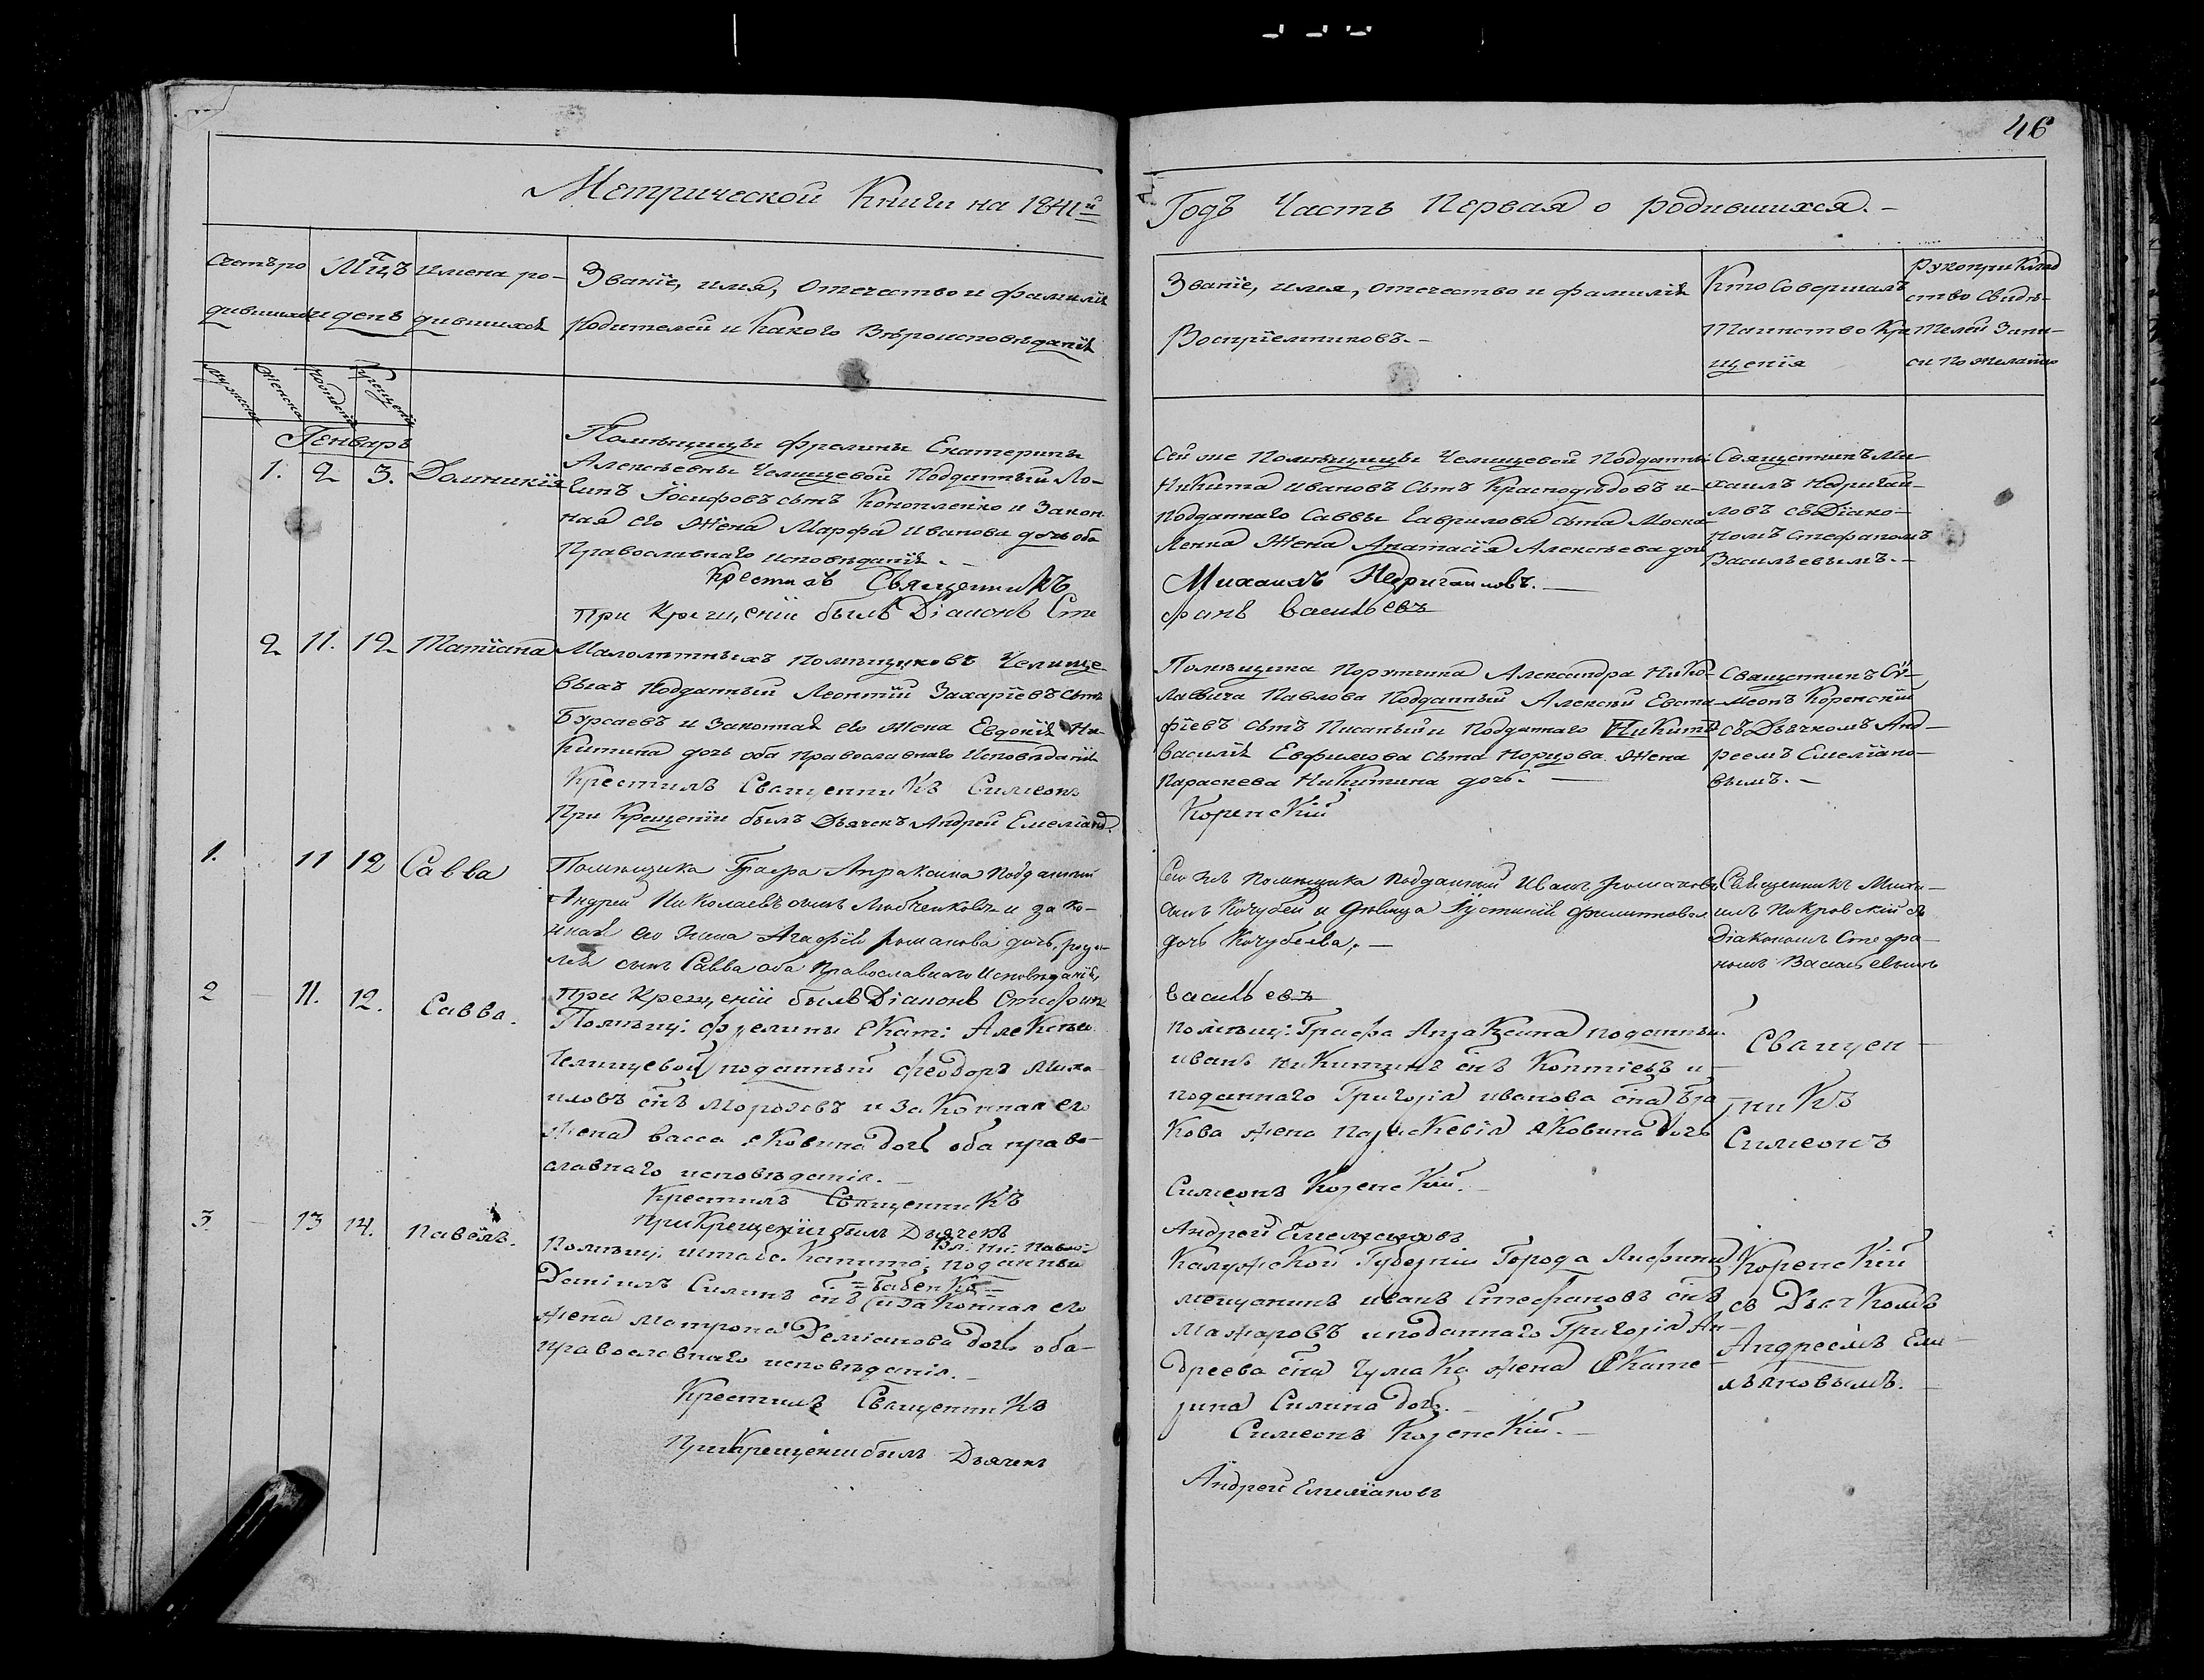 46
Метрической Книги на 1841й
Годъ Часть Первая о родившихся.
Счетъ ро
дившихся
Мцъ
и день
Имена ро-
дившихся
Званіе, имя, Отечество и фамилія
Родителей и Какого Вѣроисповѣданія
Званіе, имя, отечество и фамилія
Воспріемниковъ.-
Кто Совершалъ
Таинство Кре
щенія
Рукоприклад
ство Свидѣ-
телей Запи-
си по желанію
Генварь
1. 2 3. Домникія
Помѣщицы фрелины Екатерины
Алексѣевны Челищевой Подданный Ло-
гинъ Іосифовъ сынъ Конопленко и Закон
ная его Жена Марфа Иванова дочь оба
Православнаго исповѣданія.-
Крестилъ Священникъ
При Крещеніи былъ Діаконъ Сте
Сей же Помѣщицы Челищевой Подданный
Никита Ивановъ Сынъ Красподѣдовъ и-
подданнаго Саввы Гаврилова сына Моска
ленка Жена Анатасія Алексѣева дочь
Михаилъ Недригайловъ.-
фанъ Васильевъ
Священникъ Ми-
хаилъ Недригай-
ловъ съ Діако-
номъ Стефаномъ
Васильевымъ.-
2 11. 12 Татіана
Малолѣтныхъ Помѣщиковъ Челище
выхъ Подданный Леонтій Захаріевъ сынъ
Бурсаевъ и Законная его жена Евдокія Ни-
китина дочь оба Православнаго Исповѣданія
Крестилъ Священникъ Симеонъ
При Крещеніи былъ Дьячекъ Андрей Емеліано.
Помѣщика Поручика Александра Нико-
лаевича Павлова Подданный Алексѣй Евста-
фіевъ сынъ Писаный и Подданнаго Никиты
Василія Евфимова сына Норцова Жена
Параскева Никитина дочь.-
Коренскій
Священникъ Сі-
меонъ Коренскій
съ Дьячкомъ Анд-
реемъ Емеліано-
вымъ.-
1. 11 12 Савва
Помѣщика Графа Апраксина Подданный
Андрей Николаевъ сынъ Любченковъ и зако-
нная его жена Агафія романова дочь, роди-
лся сынъ Савва оба Православнаго Исповѣданія,
При Крещеніи былъ Діаконъ Стефанъ
Сего жъ помѣщика подданный Иванъ романовъ
сынъ Кочубей и дѣвица Іустинія филиппова
дочь Кочубеева.-
Васильевъ
Священникъ Миха-
илъ Покровскій съ
Діакономъ Стефа-
номъ Васильевымъ
2 - 11. 12. Савва.
Помѣщ: фрелины Екат: Алексѣев.
Челищевой подданный Феодоръ Миха
иловъ снъ Морозовъ и законная его
жена Васса яковина дочь оба право-
славнаго исповѣданія.-
Крестилъ Священникъ
при Крещеніи былъ Дьячекъ
помѣщ: Графа Апраксина поданный
иванъ никитинъ снъ Коптіевъ и-
поданнаго Григорія иванова сна
кова жена параскевія яковина дочь
Симеонъ Коренскій.-
Андрей Емеліановъ
Священ-
никъ
Симеонъ
3. - 13 14. Павелъ.
Вл: Ни: Павло:
Помѣщ: штабс. Капита: поданный
Даніилъ Силинъ снъ =Бабенко=
и законная его
жена Матрона Деміанова дочь оба-
православнаго исповѣданія.-
Крестилъ Священникъ
При Крещеніи былъ Дьячекъ
Калужской Губерніи Города Лифина
мещанинъ иванъ Стефановъ снъ
Мажаровъ и поданнаго Григорія Ан-
дреева сна Чумака жена Екате-
рина Силина дочь.-
Симеонъ Коренскій.-
Андрей Емеліановъ
Коренскій
съ Дьячкомъ
Андреемъ Еме-
льяновымъ.-